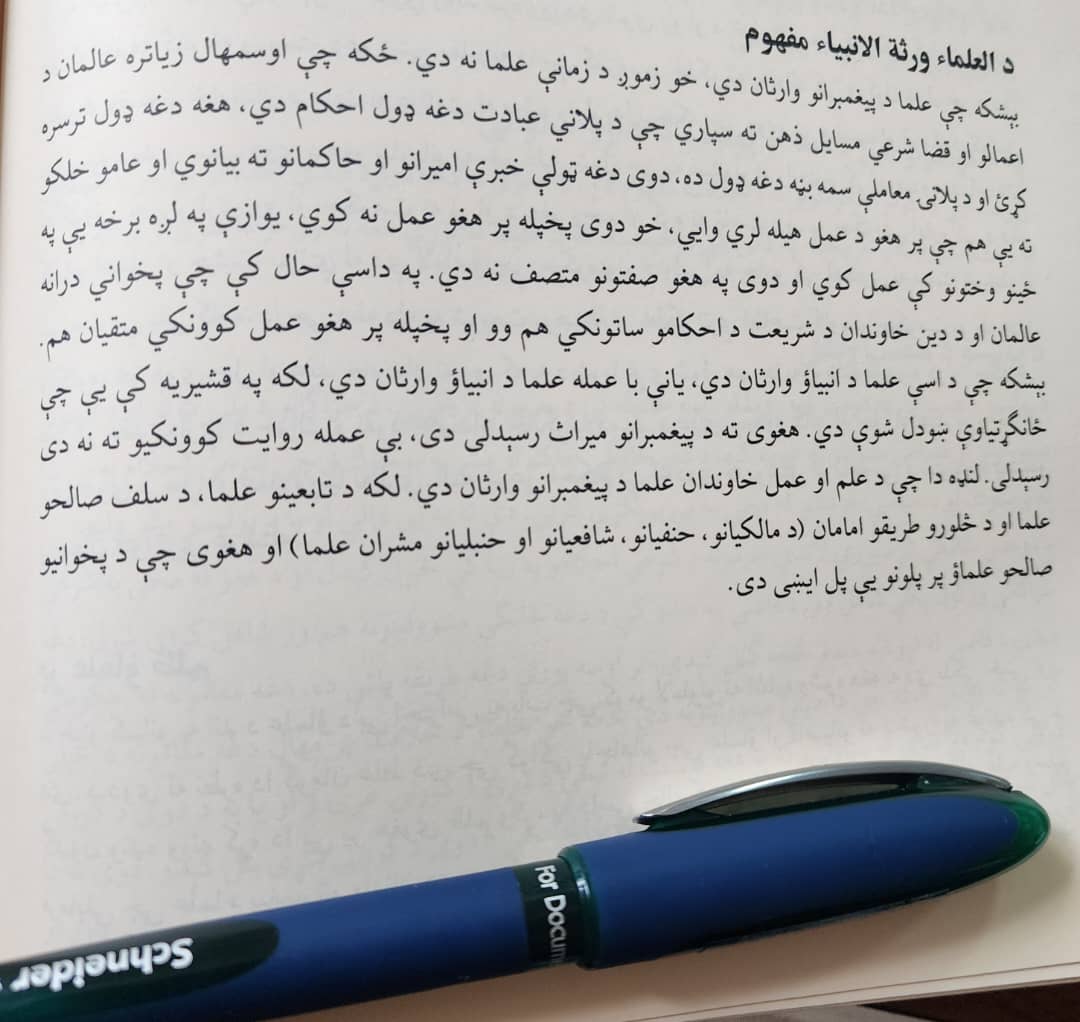 د العلماء ورثة الانبياء مفهوم
بېشکه چې علما د پيغمبرانو وارثان دي، خو زموږ د زمانې علما نه دي. ځکه چې اوسمهال زياتره عالمان د
اعمالو او قضا شرعي مسايل ذهن ته سپاري چې د پلاني عبادت دغه ډول احکام دي، هغه دغه ډول ترسره
کړئ او د پلانۍ معاملې سمه بڼه دغه ډول ده، دوی دغه ټولې خبرې اميرانو او حاکمانو ته بيانوي او عامو خلکو
ته يې هم چې پر هغو د عمل هيله لري وايي، خو دوی پخپله پر هغو عمل نه کوي، يوازې په لږه برخه يې په
ځينو وختونو کې عمل کوي او دوی په هغو صفتونو متصف نه دي. په داسې حال کې چې پخواني درانه
عالمان او د دين خاوندان د شريعت د احکامو ساتونکي هم وو او پخپله پر هغو عمل کوونکي متقيان هم.
بېشکه چې د اسې علما د انبياؤ وارثان دي، يانې با عمله علما د انبياؤ وارثان دي، لکه په قشيريه کې يې چې
ځانګړتياوې ښودل شوې دي. هغوی ته د پيغمبرانو ميراث رسېدلی دی، بې عمله روايت کوونکيو ته نه دی
رسېدلی. لنډه دا چې د علم او عمل خاوندان علما د پيغمبرانو وارثان دي. لکه د تابعينو علما، د سلف صالحو
علما او د څلورو طريقو امامان (د مالکيانو، حنفيانو، شافعيانو او حنبليانو مشران علما) او هغوی چې د پخوانيو
صالحو علماؤ پر پلونو يې پل ايښی دی.
For Docum
Schneider